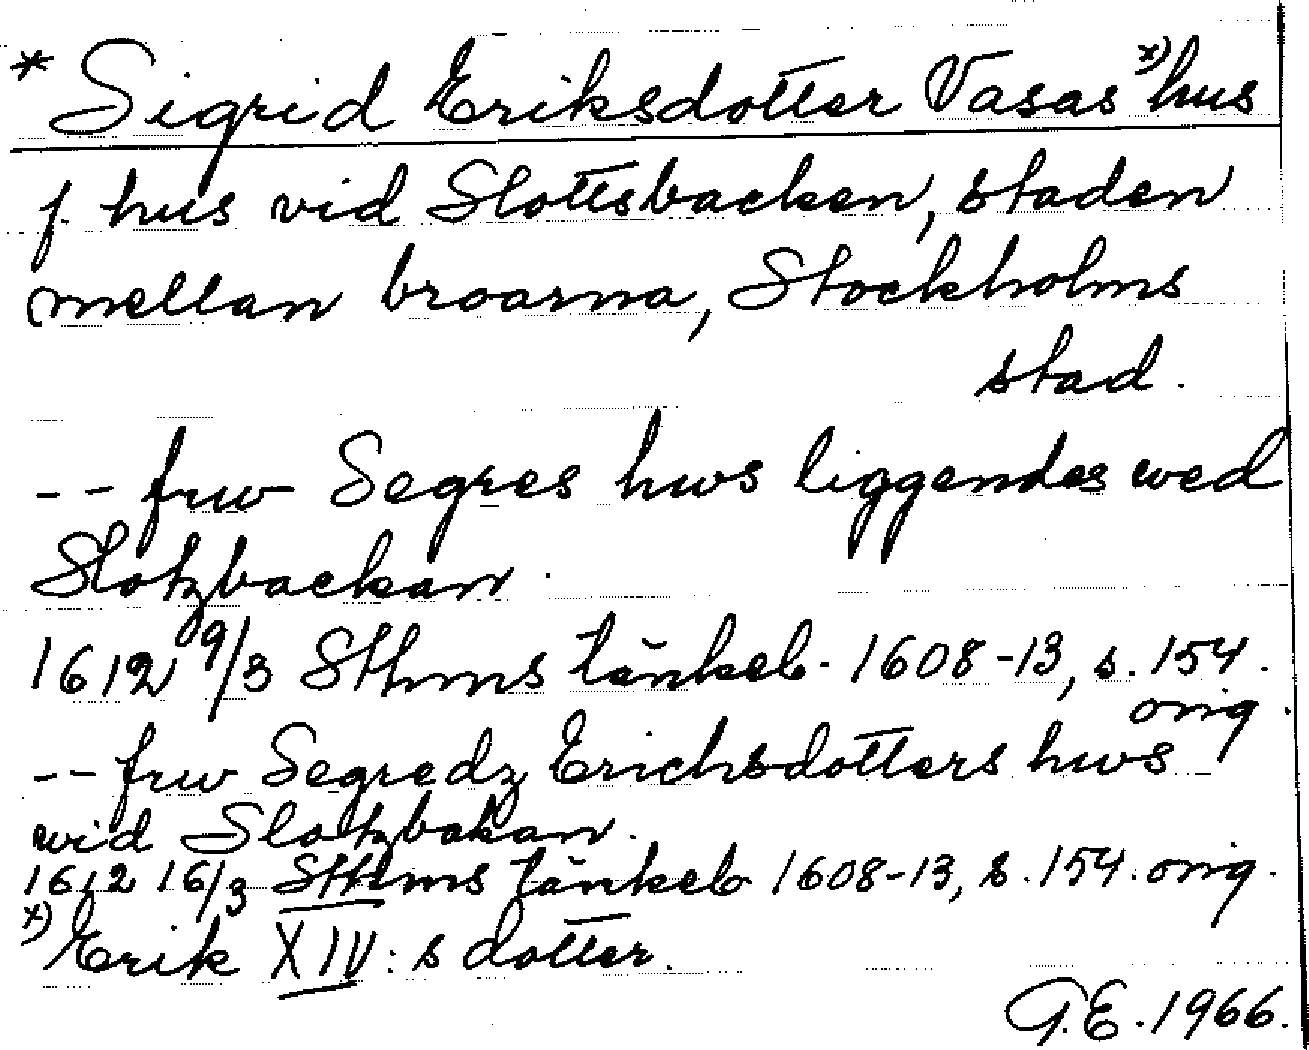 * Sigrid Eriksdotter Vasas x) hus
f. hus vid Slottsbacken, staden
mellan broarna, Stockholms
stad.
-- frw Segres hws liggendes wed
Slotzbackan.
1612 9/3 Sthms tänkeb. 1608-13, s. 154.
orig.
-- frw Segredz Erichsdotters hws
wid Slotzbakan.
1612 16/3 Sthms tänkeb 1608-13, s. 154. orig.
x) Erik XIV:s dotter.
G.E. 1966.